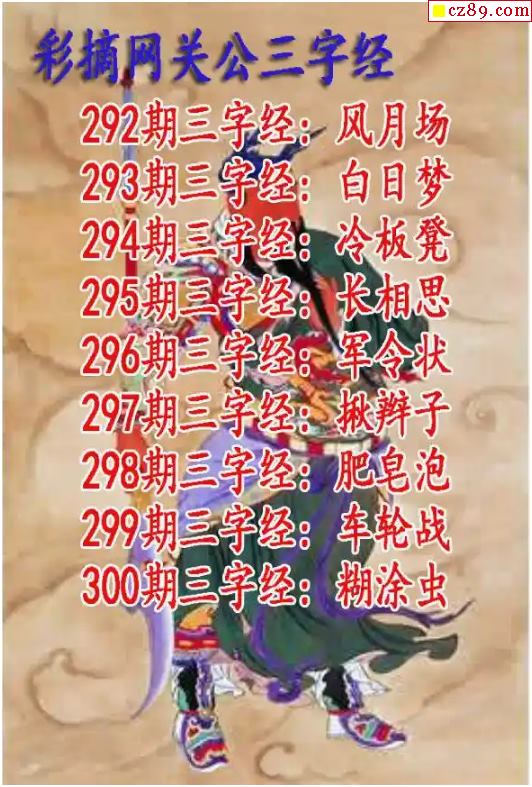 cz89.com
彩摘网关公三字经
292期三字经：风月场
293期三字经：白日梦
294期三字经：冷板凳
295期三字经：长相思
296期三字经：军令状
297期三字经：揪辫子
298期三字经：肥皂泡
299期三字经：车轮战
300期三字经：糊涂虫